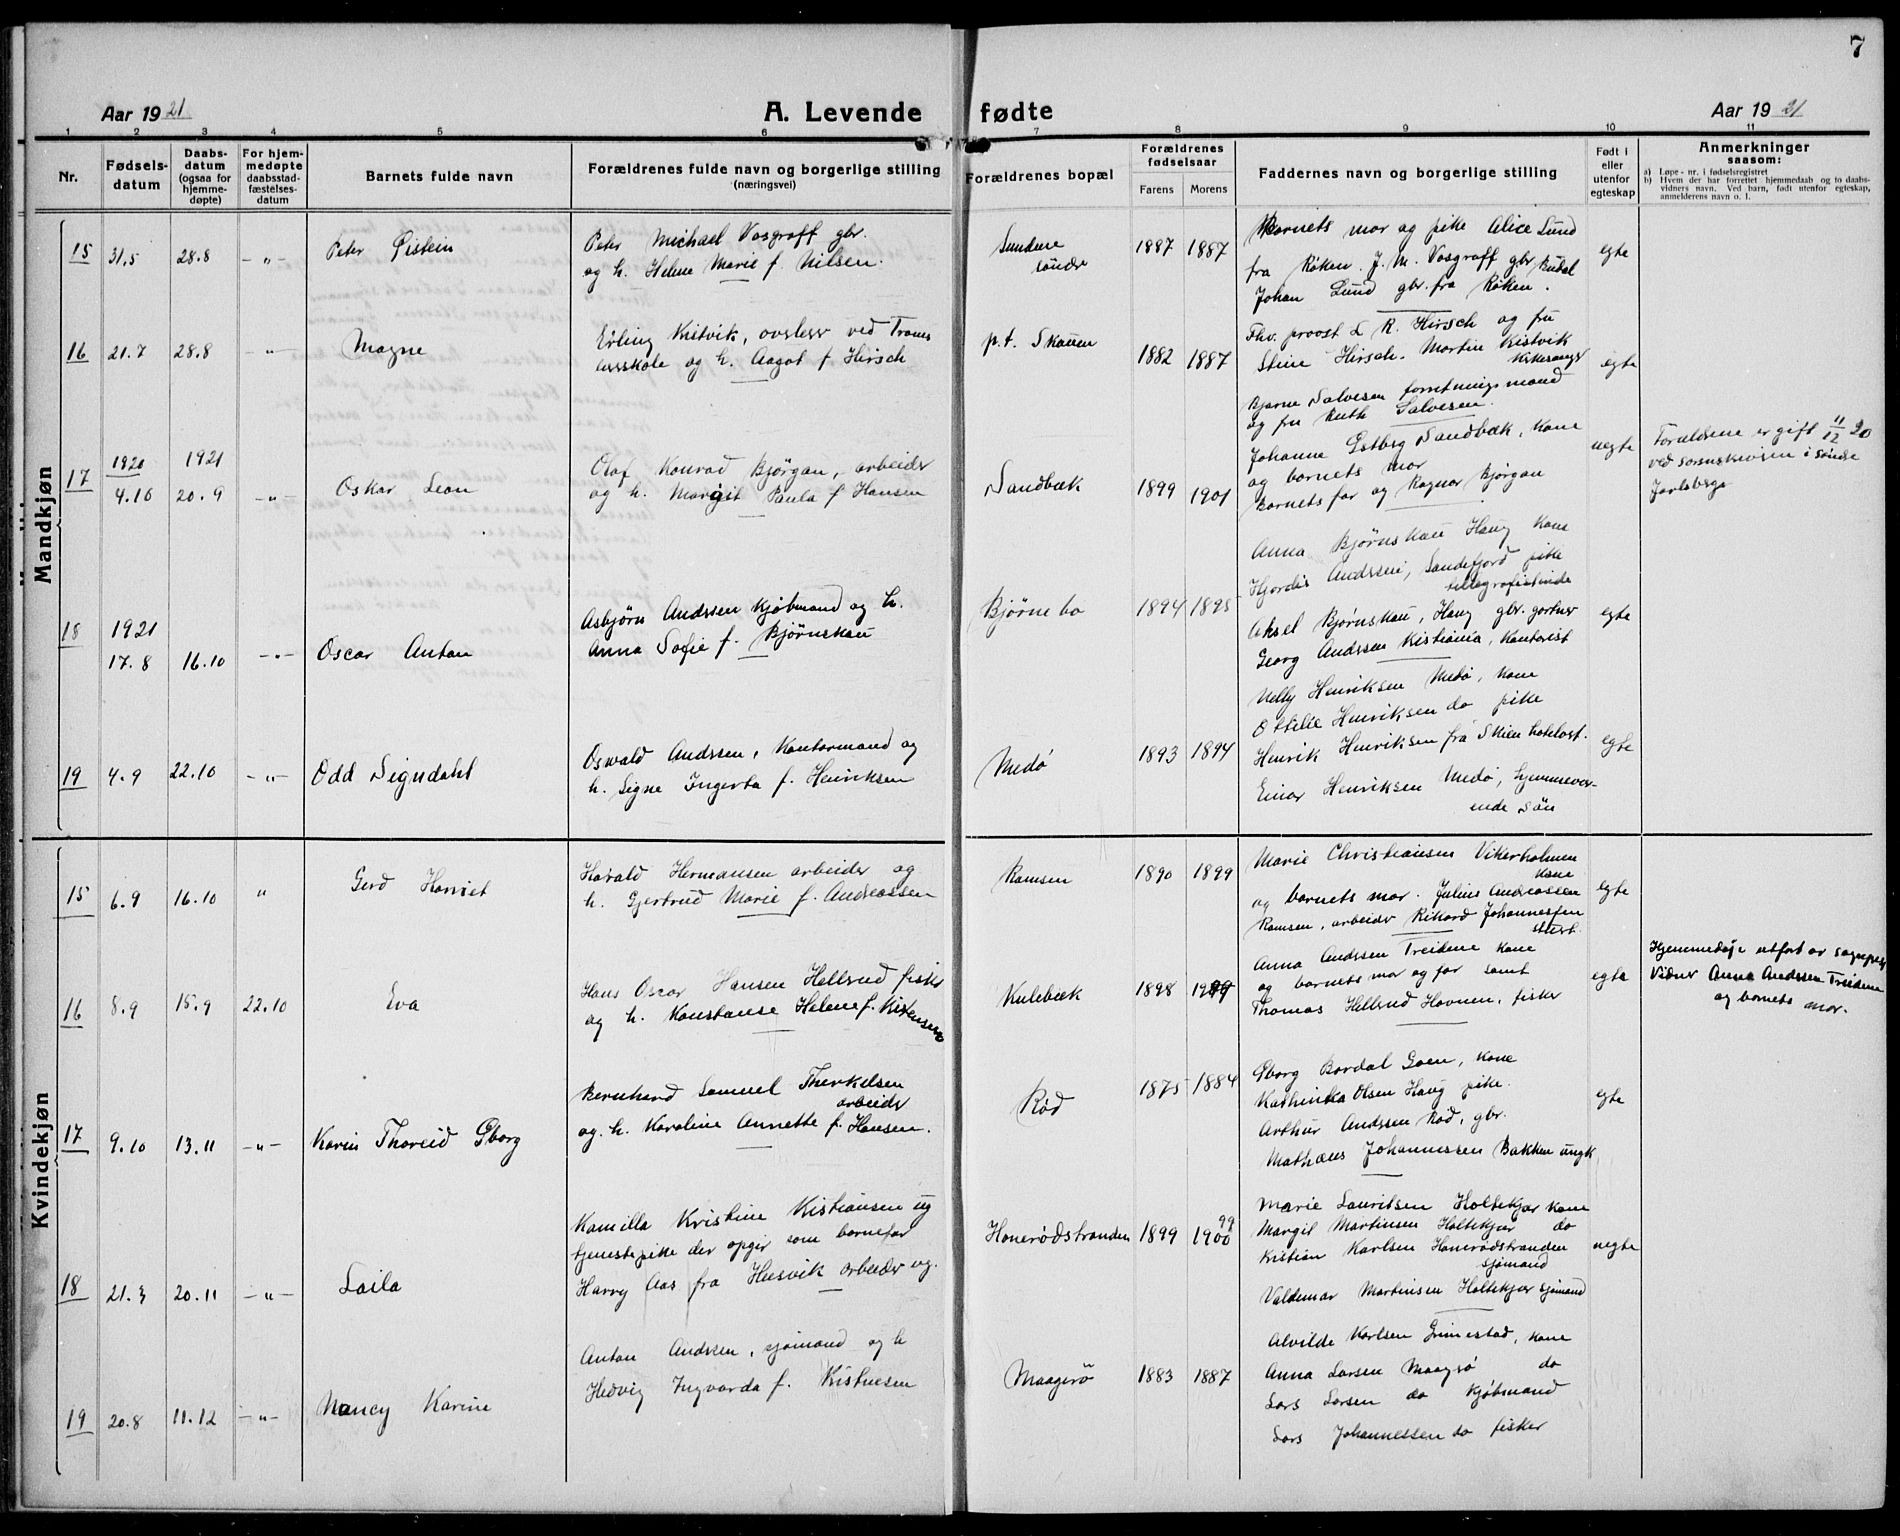 7
Aar 1921
A. Levende fødte
Aar 1921
1 2 3 4 5 6 7 8 9 10 11
Nr.
Fødsels-
datum
Daabs-
datum
(ogsaa for
hjemme-
døpte)
For hjem-
medøpte
daabsstad-
fæstelses-
datum
Barnets fulde navn
Forældrenes fulde navn og borgerlige stilling
(næringsvei)
Forældrenes bopæl
Forældrenes
fødselsaar
Farens Morens
Faddernes navn og borgerlige stilling
Født i
eller
utenfor
egteskap
Anmerkninger
saasom:
a) Løpe-nr. i fødselsregistret
b) Hvem der har forrettet hjemmedaab og to daabs-
vidners navn. Ved barn, født utenfor egteskap,
anmelderens navn o. l.
Mandkjøn
15 31.5 28.8 —„— Peter Øistein
Peter Michael Vosgraff gbr.
og h. Helene Marie f. Nilsen.
Sundene
søndre
1887 1887
Barnets mor og pike Alice Lund
fra Røken. J. M. Vosgraff gbr
Johan Lund gbr. fra Røken.
egte
16 21.7 28.8 —„— Magne
Erling Kistvik, overlærer ved
og h. Aagot f Hirsch
p.t. Skauen
1882 1887
Fhv. provst L R. Hirsch og fru
Stine Hirsch. Martin Kistvik
Bjarne Salvesen forretningsmand
og fru Ruth Salvesen.
egte
17 1920 4.10 1921 20.9 —„— Oskar Leon
Olaf Konrad Bjørgan, arbeider
og h. Margit Paula f Hansen
Sandbæk
1899 1901
Johanne Estberg Sandbæk, kone
og barnets mor
Barnets far og Ragnar Bjørgan
uegte
Forældrene er gift 11/12 20
ved sorenskriveren i søndre
Jarlsberg
18 1921 17.8 16.10 —„— Oscar Anton
Asbjørn Andrsen kjøbmand og h.
Anna Sofie f. Bjørnskau
Bjørnebo
1894 1895
Anna Bjørnskau Haug kone
Hjordis Andrsen, Sandefjord pike
telegrafistinde
Aksel Bjørnskau, Haug gbr. gartner
Georg Andrsen Kristiania, Kontorist
egte
19 4.9 22.10 —„— Odd Signdahl
Oswald Andrsen, Kontormand og
h. Signe Ingerta f. Henriksen
Medø
1893 1894
Nelly Henriksen Medø, kone
Ottilie Henriksen do pike
Henrik Henriksen fra Skien
Einar Henriksen Medø, hjemmevær-
ende søn
egte
Kvindekjøn
15 6.9 16.10 „ Gerd Harriet
Harald Hermansen arbeider og
h. Gjertrud Marie f. Andreassen
Ramsen
1890 1899
Marie Christiansen Vikerholmen
kone
og barnets mor. Julius Andreassen
Ramsen, arbeider Rikard Johannessen
egte
16 8.9 15.9 22.10 Eva
Hans Oscar Hansen Hellerud fisker
og h. Konstanse Helene f.
Kulebæk
1898
Anna Andrsen Treidene kone
og barnets mor og far samt
Thomas Hellerud Havnen, fisker
egte
Hjemmedøpt utført av
Vidner Anna Andrsen Treidene
og barnets mor.
17 9.10 13.11 —„— Karin Thoreid Gborg
Bernhard Samuel Therkelsen
arbeider
og. h. Karoline Annette f. Hansen.
Rød
1875 1884
Gborg Bordal Goen, kone
Kathinka Olsen Haug pike.
Arthur Andrsen Rød, gbr.
Mathæus Johannessen Bakken ungk
egte
18 21.3 20.11 —„— Laila
Kamilla Kristine Kristiansen ug
tjenestepike der opgir som barnefar
Harry Aas fra Husvik arbeider ug.
Honerødstranden
1899 1900 99
Marie Lauritsen Holtekjær kone
Margit Martinsen Holtekjær do
Kristian Karlsen Honerødstranden
sjømand
Valdemar Martinsen Holtekjær sjømand
uegte
19 20.8 11.12 —„— Nancy Karine
Anton Andrsen, sjømand og h
Hedvig Ingvarda f. Kristiesen
Maagerø
1883 1887
Alvilde Karlsen Grimestad, kone
Anna Larsen Maagerø do
Lars Larsen do kjøbmand
Lars Johannessen do fisker